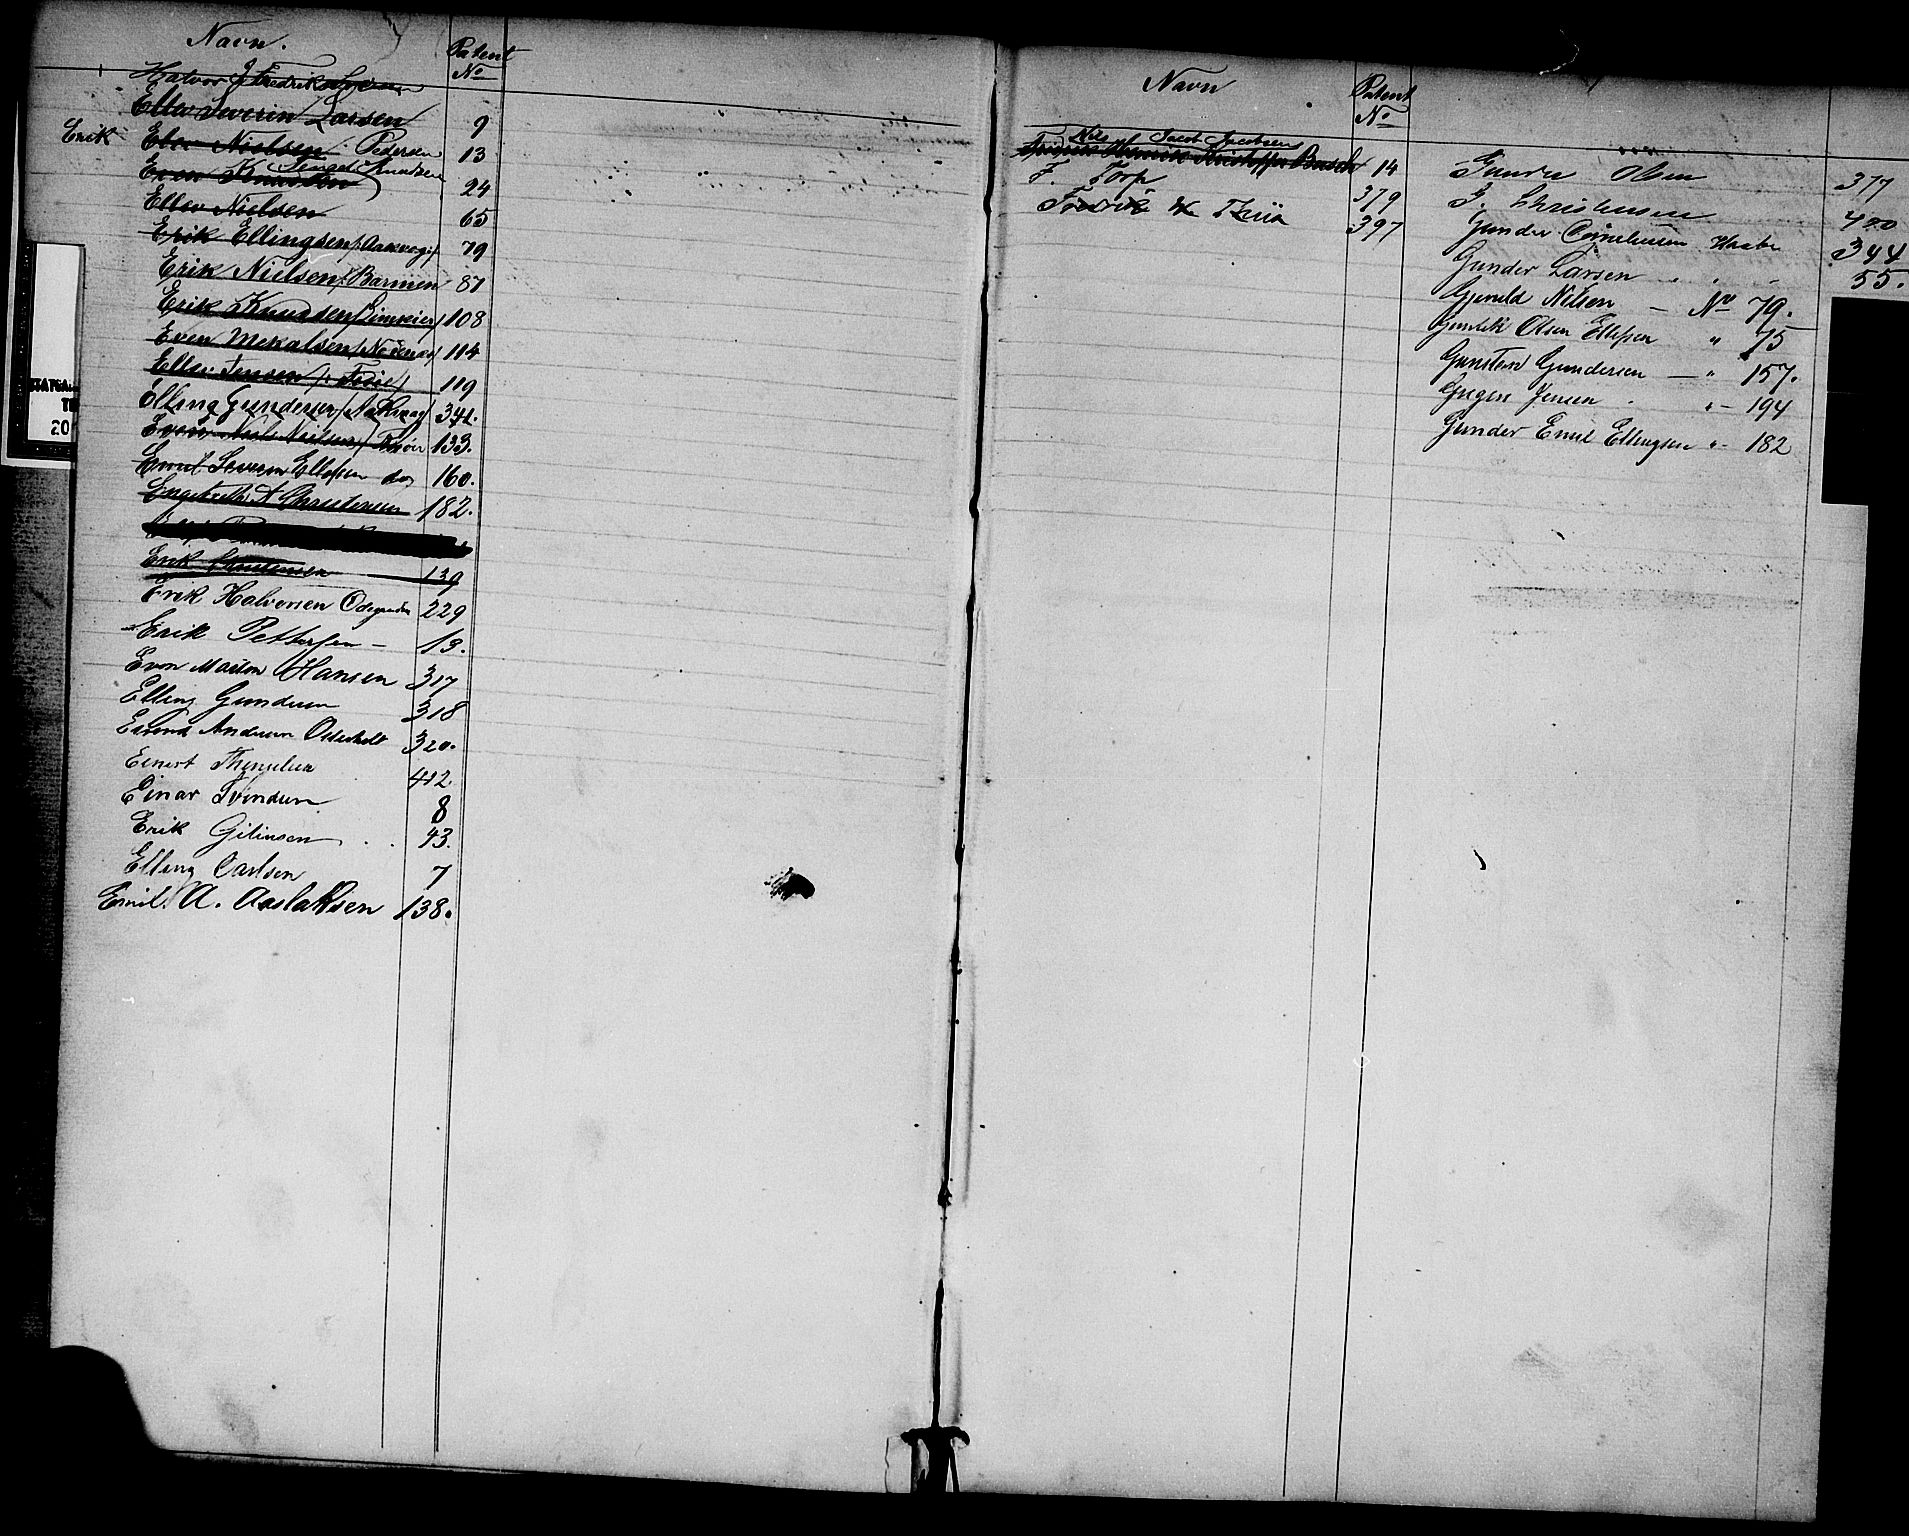 Navn.
Patent
No
Halvor J Fredriksen
Ellev Severin Larsen 9
Erik Elev Nielsen Pedersen 13
Even Knudsen Knudsen 24
Ellev Nielsen 65
Erik Ellingsen 79
Erik Nielsen /Barmen 87
Erik Knudsen 108
Even Mikalsen 114
Ellev Jensen 119
Elling Gundersen 341.
Even Niels Nielsen 133.
Emil Severin Ellefsen do 160.
Engebreth N Christensen 182.
Erik Christensen 139
Erik Halvorsen 229
Erik Pettersen - 13.
Even Marton Hansen 317
Elling Gundersen 318
Andersen 320.
Einert 412
Einar Svendsen 8
Erik 43.
Elling Carlsen 7
Emil. A. Aaslaksen 138.
Navn
Patent
No
Nils Jacob Jacobsen
Busch 14
F. Torp 379
Fredrik W 397
Olsen 377
Christensen 400
Gunder Corneliussen 344
Gunder Larsen 55.
Nilsen — No 79.
Olsen Ellefsen " 75
Gunsten Gundersen — " 157.
Jensen " - 194
Gunder Emil Ellingsen " - 182
20